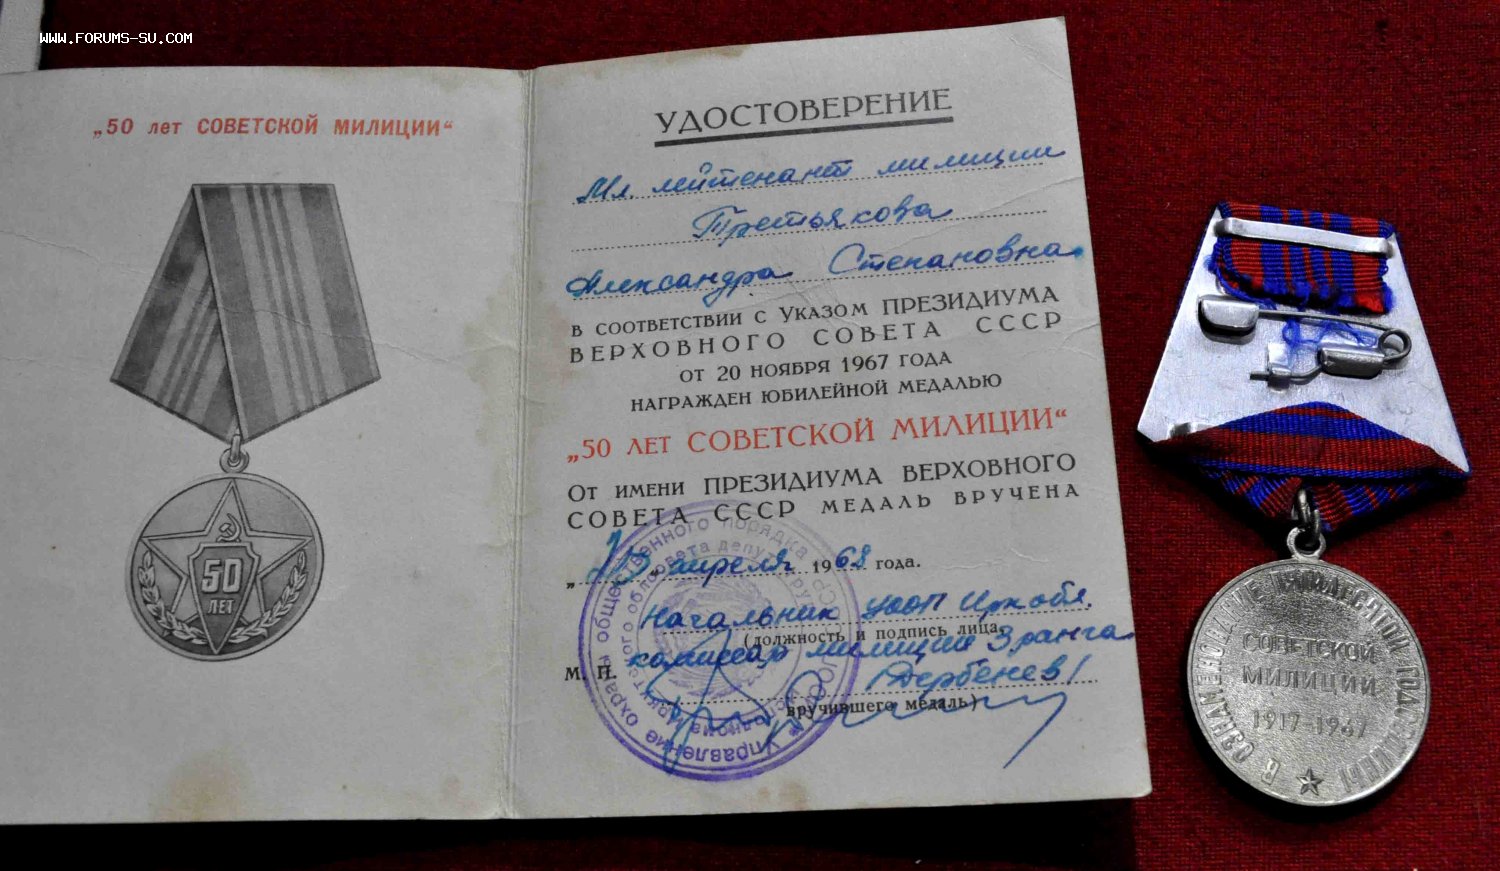 WWW.FORUMS-SU.COM
„50 лет СОВЕТСКОЙ МИЛИЦИИ“
50
ЛЕТ
УДОСТОВЕРЕНИЕ
Мл. лейтенант милиции
Третьякова
Александра Степановна
В СООТВЕТСТВИИ С УКАЗОМ ПРЕЗИДИУМА
ВЕРХОВНОГО СОВЕТА СССР
ОТ 20 НОЯБРЯ 1967 ГОДА
НАГРАЖДЕН ЮБИЛЕЙНОЙ МЕДАЛЬЮ
„50 ЛЕТ СОВЕТСКОЙ МИЛИЦИИ“
ОТ ИМЕНИ ПРЕЗИДИУМА ВЕРХОВНОГО
СОВЕТА СССР МЕДАЛЬ ВРУЧЕНА
апреля 1968 года.
Начальник УООП Иркобл.
(должность и подпись лица,
комиссар милиции 3 ранга
М. П.
(Дербенев)
вручившего медаль)
Управление охраны общественного порядка
В ОЗНАМЕНОВАНИЕ ПЯТИДЕСЯТОЙ ГОДОВЩИНЫ
СОВЕТСКОЙ
МИЛИЦИИ
1917-1967